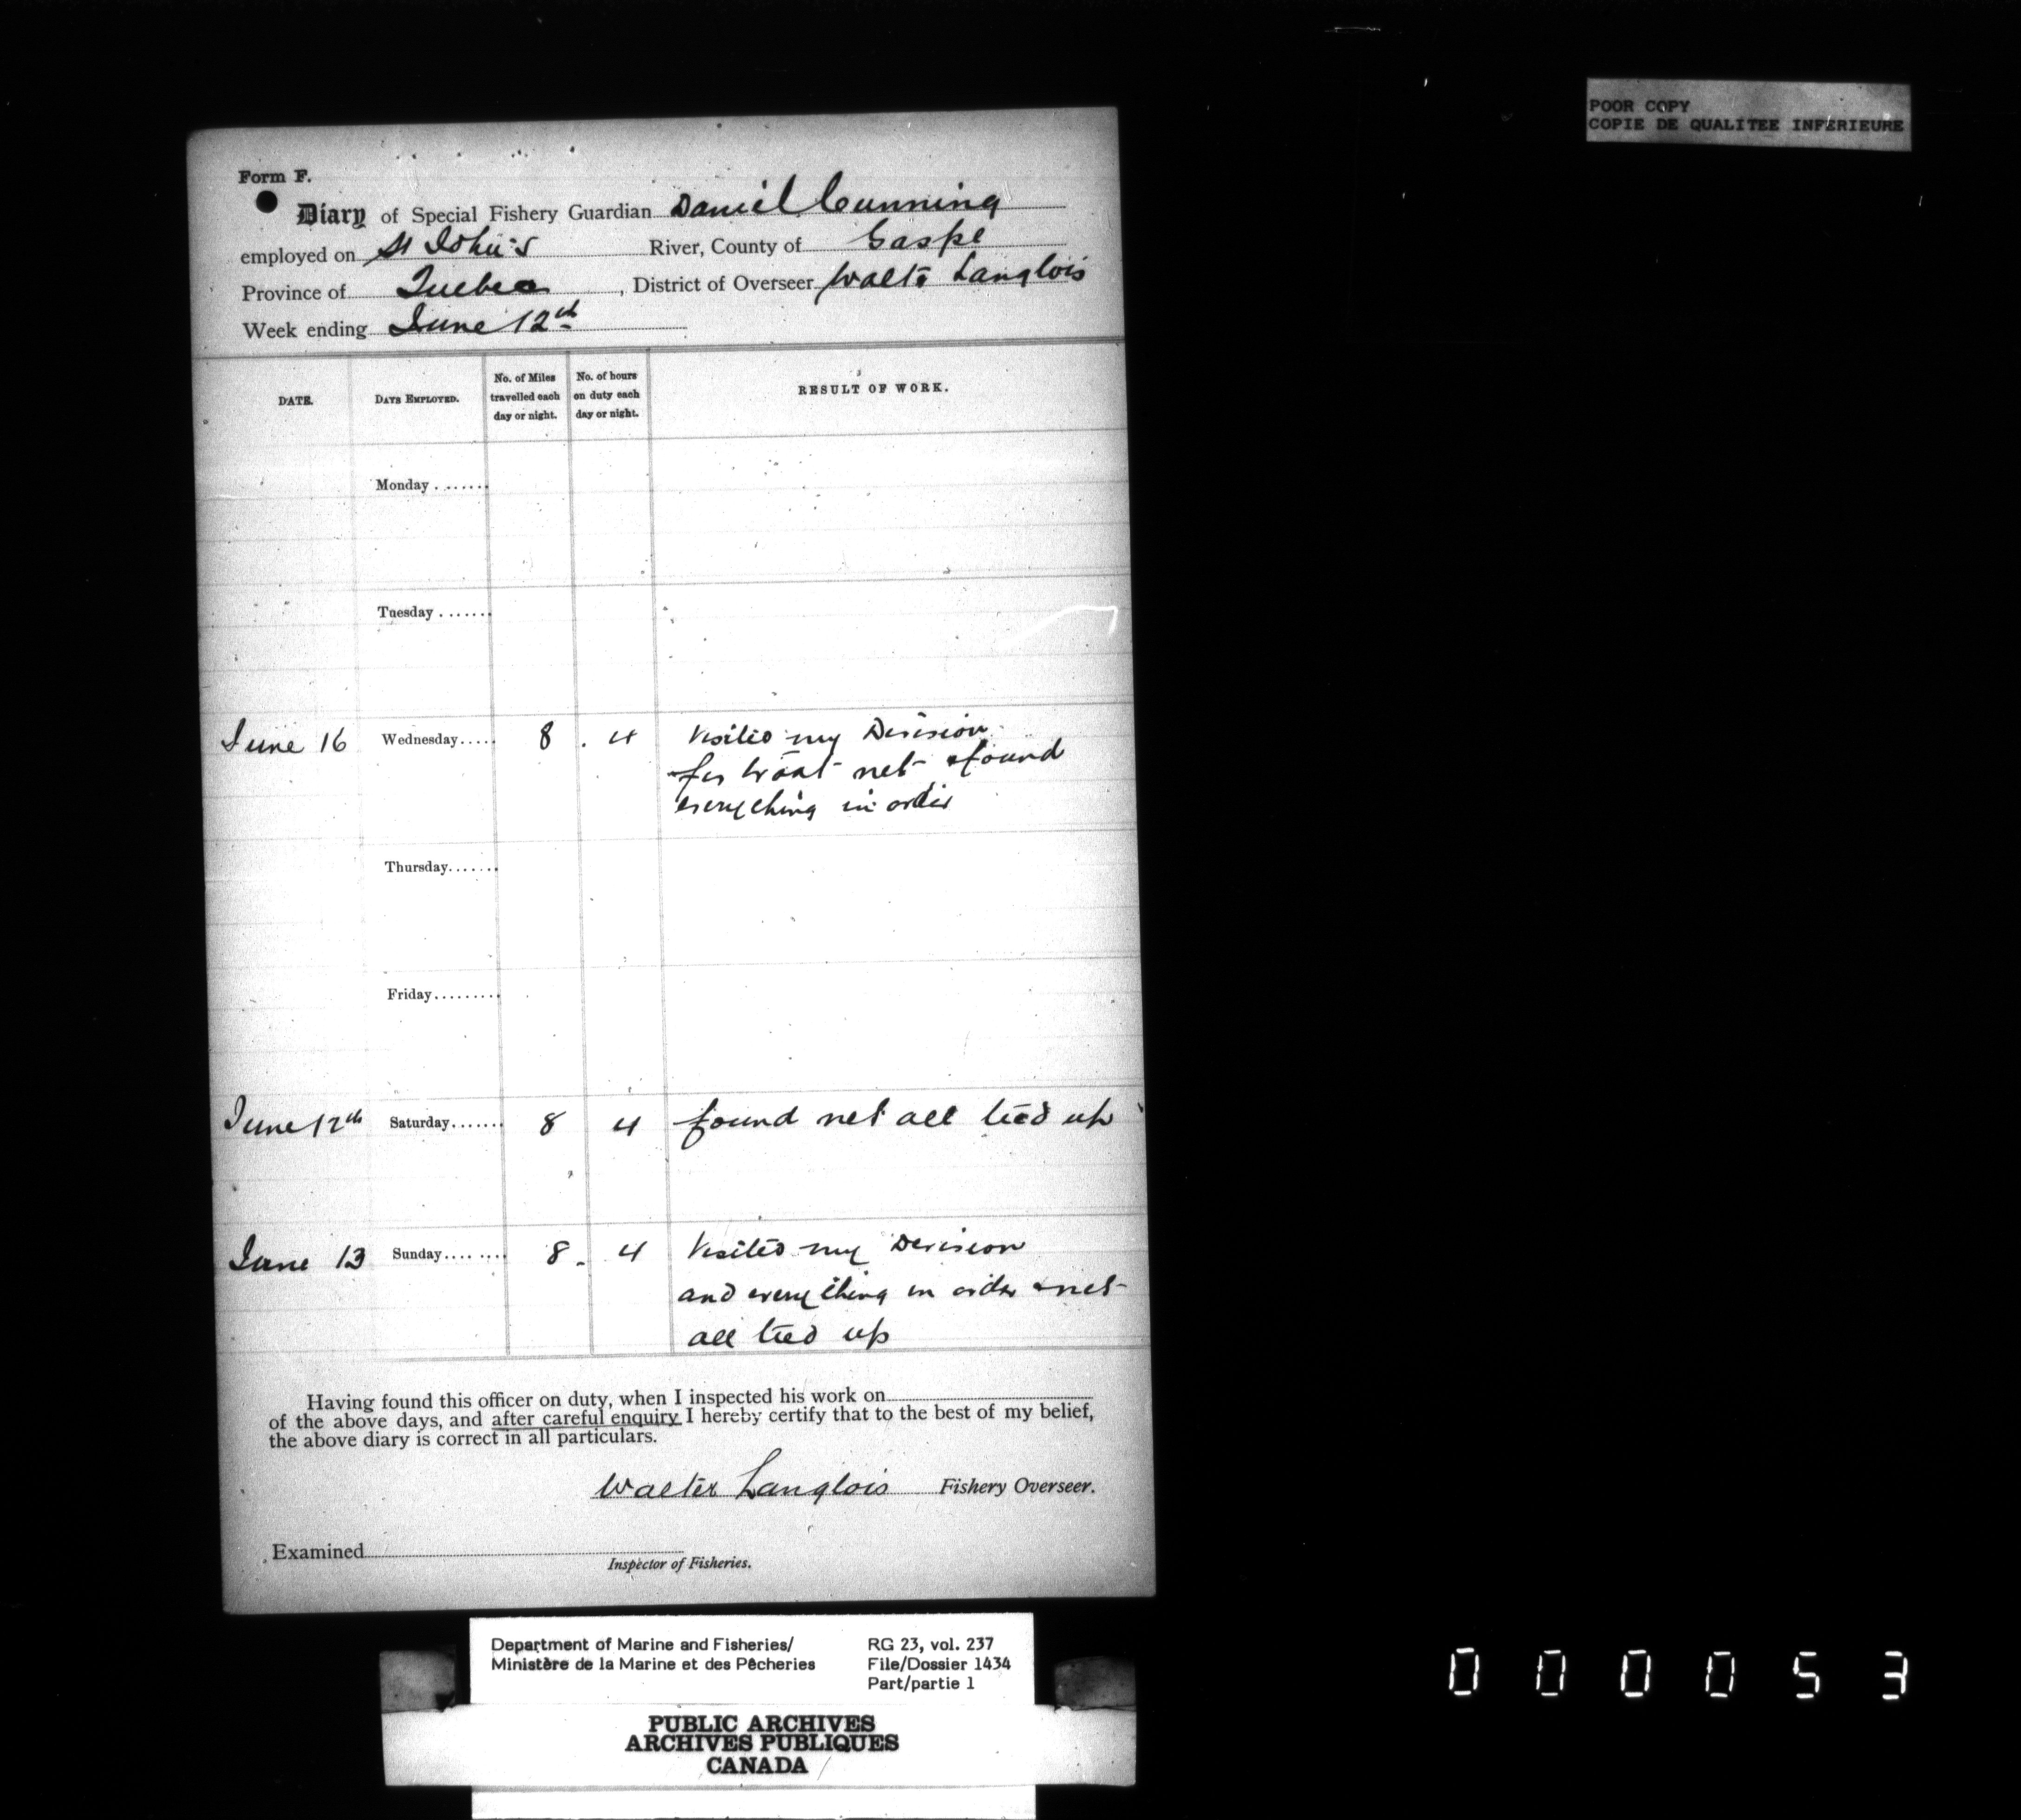 POOR COPY
COPIE DE QUALITEE INFERIEURE
Form F.
Diary of Special Fishery Guardian Daniel Cunning
employed on St John's River, County of Gaspe
Province of Quebec, District of Overseer Walter Langlois
Week ending June 12th
DATE. DAYS EMPLOYED. No. of Miles travelled each day or night. No. of hours on duty each day or night. RESULT OF WORK.
Monday
Tuesday
June 16 Wednesday 8 4 Visited my Division
for trout net & found
everything in order
Thursday
Friday
June 12th Saturday 8 4 found net all tied up
June 13 Sunday 8 4 Visited my Devision
and everything in order & net
all tied up
Having found this officer on duty, when I inspected his work on
of the above days, and after careful enquiry I hereby certify that to the best of my belief,
the above diary is correct in all particulars.
Walter Langlois Fishery Overseer.
Examined
Inspector of Fisheries.
Department of Marine and Fisheries/ RG 23, vol. 237
Ministère de la Marine et des Pêcheries File/Dossier 1434
Part/partie 1
PUBLIC ARCHIVES
ARCHIVES PUBLIQUES
CANADA
000053